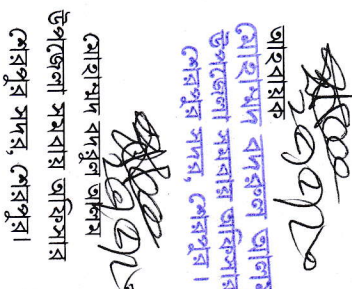 আহবায়ক
মোহাম্মদ বদরুল আলম
উপজেলা সমবায় অফিসার
শেরপুর সদর, শেরপুর।
মোহাম্মদ বদরুল আলম
উপজেলা সমবায় অফিসার
শেরপুর সদর, শেরপুর।